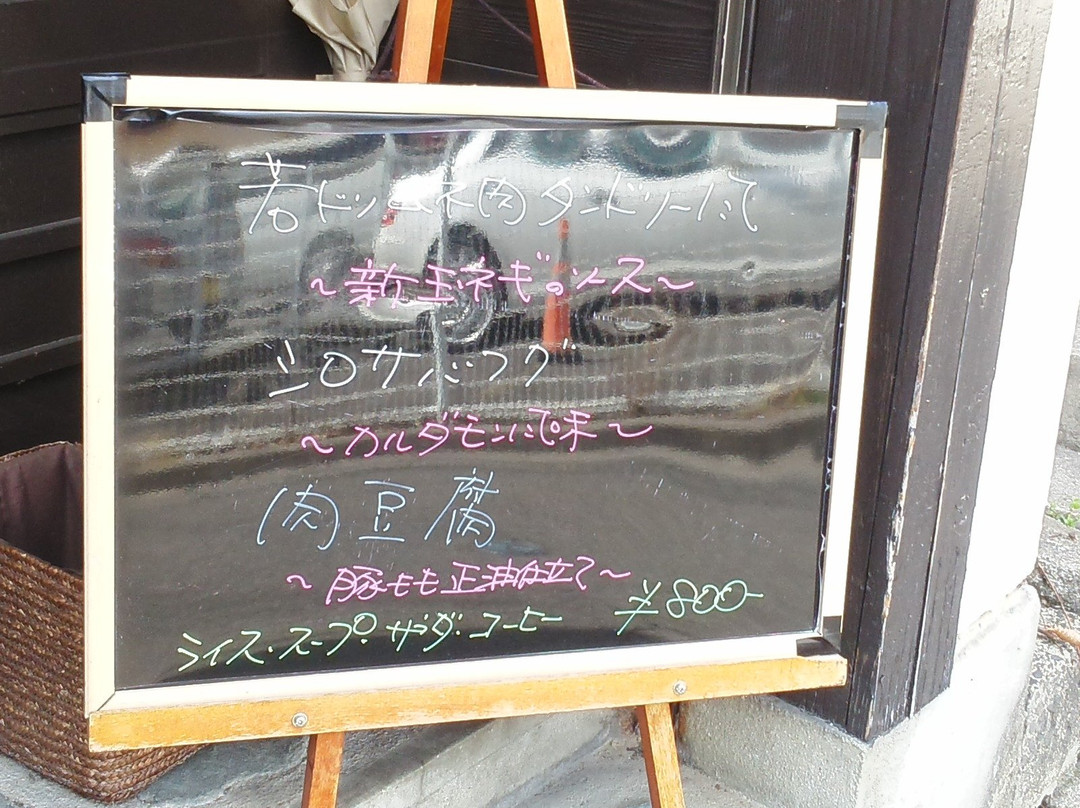 若ドリムネ肉タンドリー仕立て
～新玉ネギのソース～
シロサバフグ
～カルダモン風味～
肉豆腐
～豚もも正油仕立て～
ライス・スープ・サラダ・コーヒー ¥800-